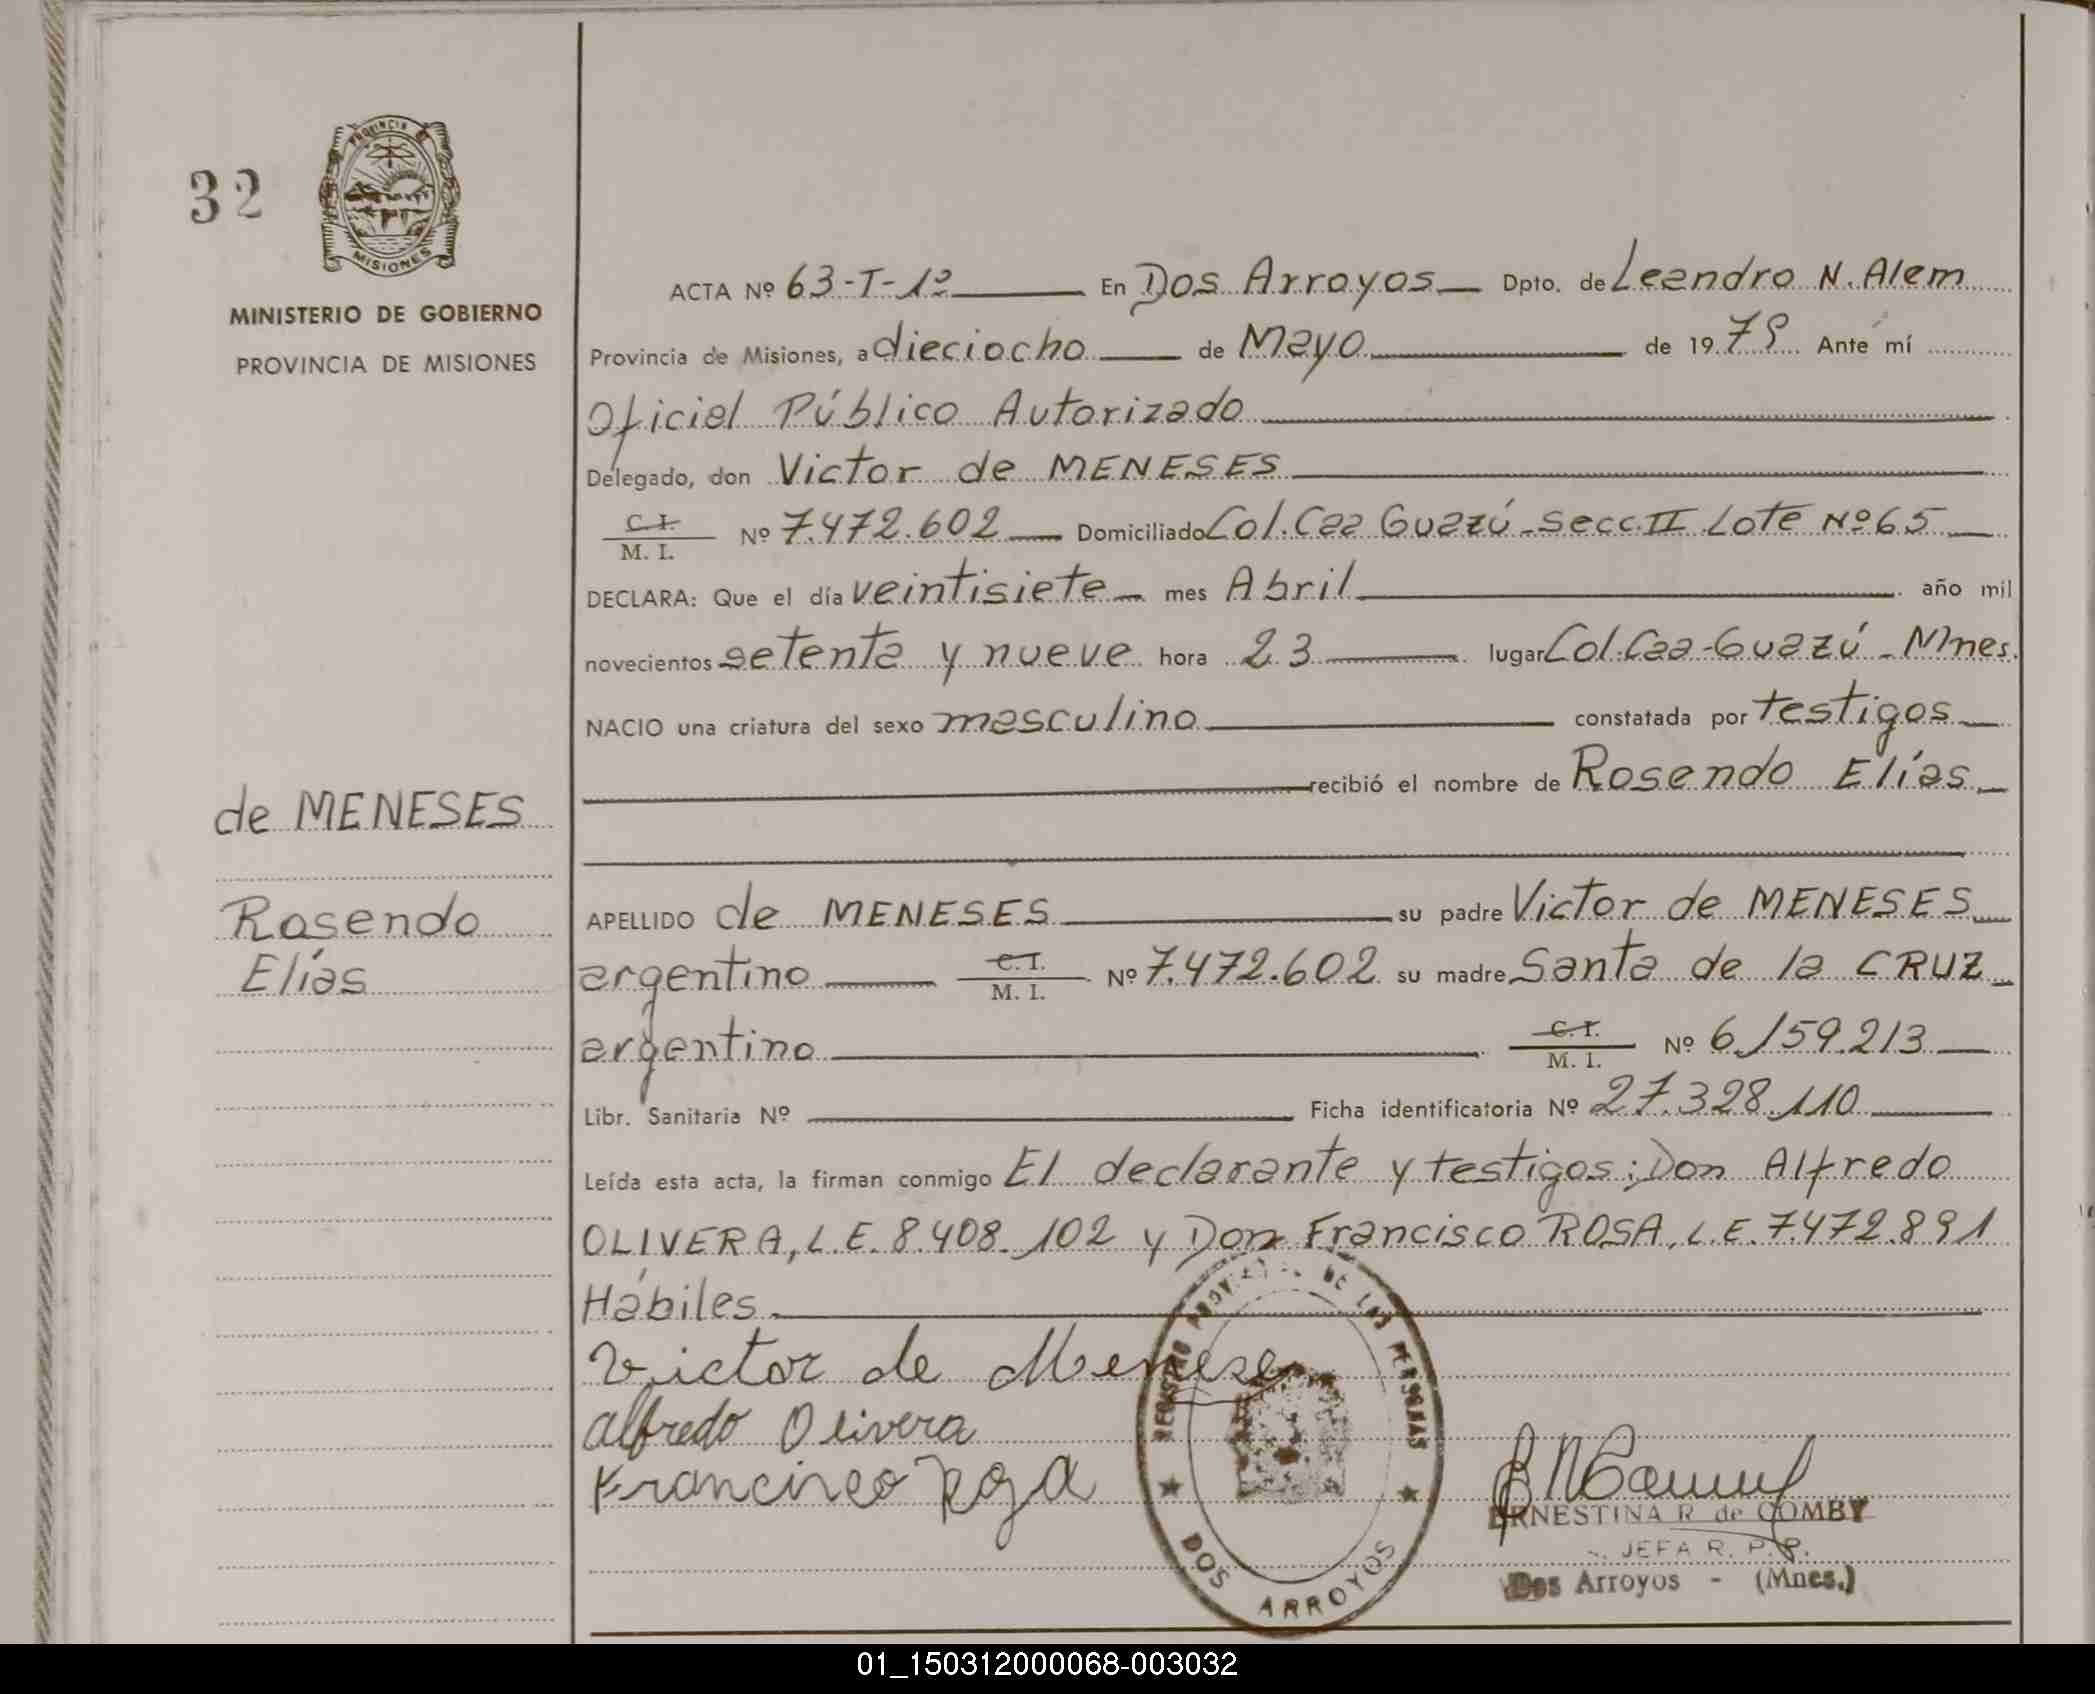 32
PROVINCIA DE
MISIONES
MINISTERIO DE GOBIERNO
PROVINCIA DE MISIONES
de MENESES
Rosendo
Elías
ACTA Nº 63-T-1º En Dos Arroyos Dpto. de Leandro N. Alem
Provincia de Misiones, a dieciocho de Mayo de 1979 Ante mí
Oficial Público Autorizado
Delegado, don Victor de MENESES
C. I. / M. I. Nº 7.472.602 Domiciliado Col. Caa Guazú - Secc. II Lote Nº 65
DECLARA: Que el día veintisiete mes Abril año mil
novecientos setenta y nueve hora 23 lugar Col. Caa-Guazú - Mnes.
NACIO una criatura del sexo masculino constatada por testigos
recibió el nombre de Rosendo Elías
APELLIDO de MENESES su padre Victor de MENESES
argentino C. I. / M. I. Nº 7.472.602 su madre Santa de la CRUZ
argentino C. I. / M. I. Nº 6.159.213
Libr. Sanitaria Nº Ficha identificatoria Nº 27.328.110
Leída esta acta, la firman conmigo El declarante y testigos: Don Alfredo
OLIVERA, L.E. 8.408.102 y Don Francisco ROSA, L.E. 7.472.891
Hábiles.
Victor de Meneses
Alfredo Olivera
Francisco Rosa
REGISTRO PROVINCIAL DE LAS PERSONAS
DOS ARROYOS
ERNESTINA R. de COMBY
JEFA R. P. P.
Dos Arroyos - (Mnes.)
01_150312000068-003032